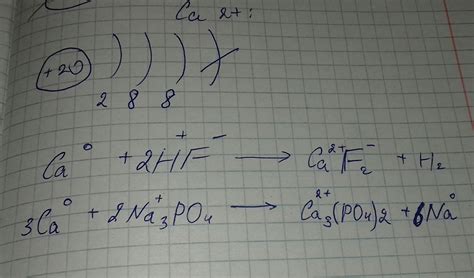 Ca 2+:
+20 ) ) ) )
2 8 8
Ca⁰ + 2H⁺F⁻ → Ca²⁺F₂⁻ + H₂
3Ca⁰ + 2Na₃⁺PO₄ → Ca₃²⁺(PO₄)2 + 6Na⁰